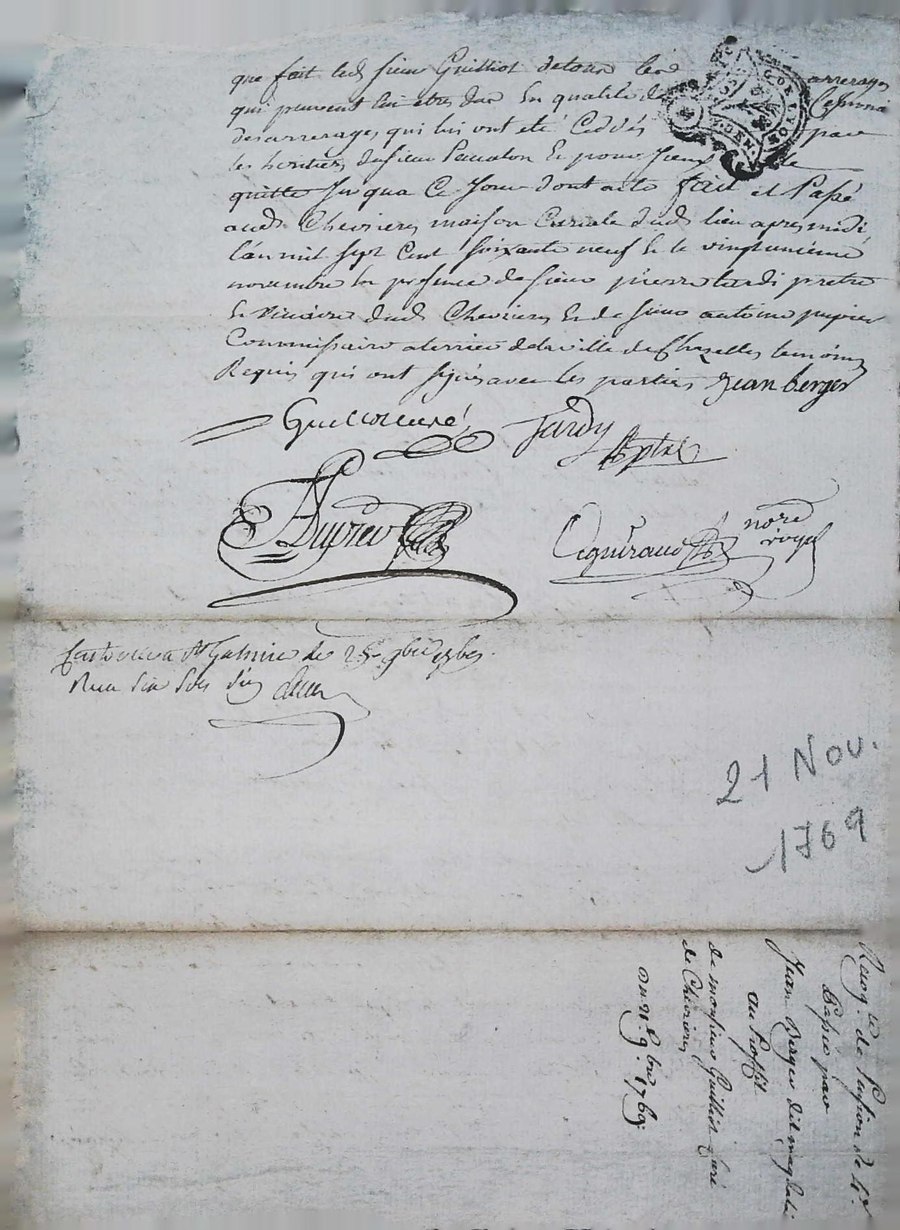 que fait led sieur Guilliot detous lesd arrerages
qui peuvent lui etre dus En qualité de Cessionaire
desarrerages qui lui ont eté Cedés par
les heritiers dusieur Pauaton Et pour
quitte Jusqua Ce Jour dont acte fait et Passé
aud Chevrieres maison Curiale dud lieu apres midi
l'an mil sept Cent soixante neuf Et le vingtunieme
novembre En presence de sieur pierre tardi pretre
Et vicaire dud Chevrieres Et de sieur antoine pupier
Commissaire a terrier dela ville de Chazelles temoins
Requis qui ont signés avec les parties Jean berger
Guilliot curé Jardy
ptre
APupier nore
royal
a St Galmier le 25e 9bre 1769
Reçu six sols six
21 Nov.
1769
de pension de
passée par
Jean Berger dit
au Proffit
de monsieur Guilliot Curé
de Chevrieres
du 21e 9bre 1769